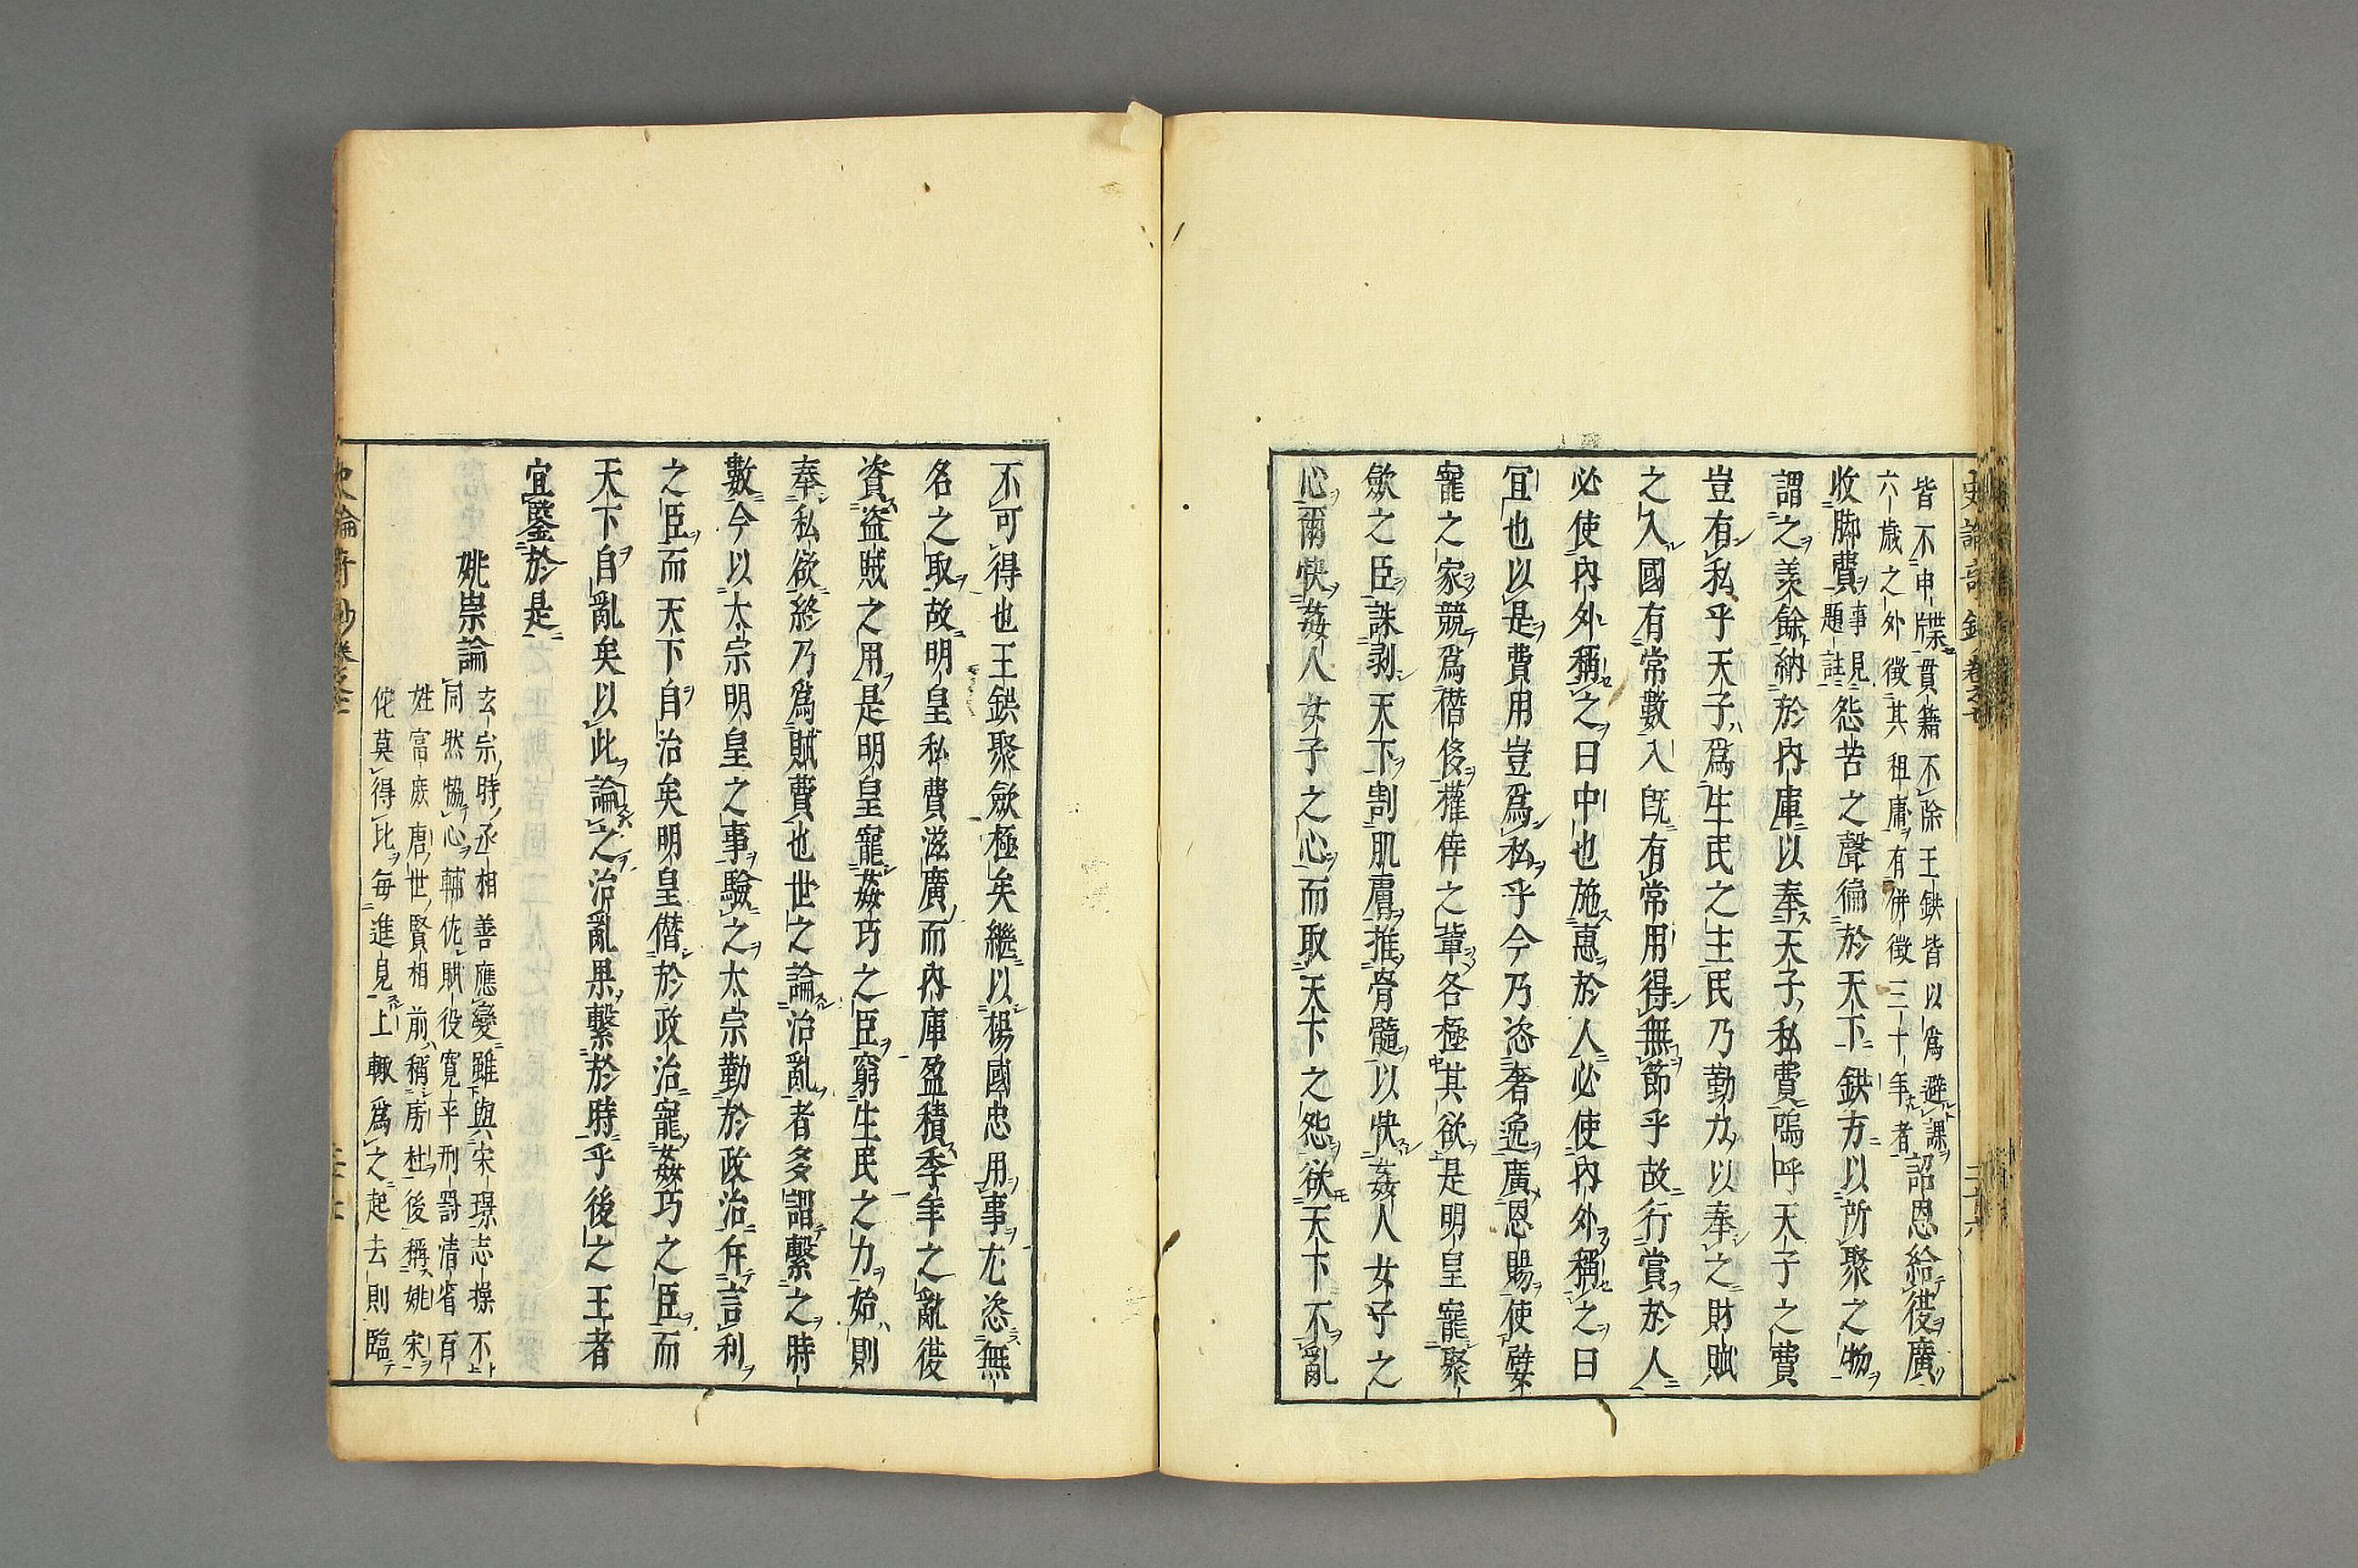 皆不申牒貫籍不除王鉷皆以爲避課
六歳之外徴其租庸有併徴三十年者
詔恩給復廣
收脚費
事見
題註
怨苦之聲徧於天下鉷方以所聚之物
謂之羨餘納於内庫以奉天子私費嗚呼天子之費
豈有私乎天子爲生民之主民乃勤力以奉之財賦
之入國有常數入既有常用得無節乎故行賞於人
必使内外稱之曰中也施惠於人必使内外稱之曰
宜也以是費用豈爲私乎今乃恣奢逸廣恩賜使嬖
寵之家競爲僭侈權倖之輩各極其欲是明皇寵聚
歛之臣誅剥天下割肌膚推骨髓以快姦人女子之
心爾快姦人女子之心而取天下之怨欲天下不亂
不可得也王鉷聚歛極矣繼以楊國忠用事尤恣無
名之取故明皇私費滋廣而内庫盈積季年之亂徒
資盗賊之用是明皇寵姦巧之臣窮生民之力始則
奉私欲終乃爲賊費也世之論治亂者多謂繫之時
數今以太宗明皇之事驗之太宗勤於政治任言利
之臣而天下自治矣明皇僭於政治寵姦巧之臣而
天下自亂矣以此論之治亂果繫於時乎後之王者
宜鑒於是
姚崇論
玄宗時丞相善應變雖與宋璟志操不
同然恊心輔佐賦役寛平刑罰清省百
姓富庻唐世賢相前稱房杜後稱姚宋
侘莫得比毎進見上輙爲之起去則臨